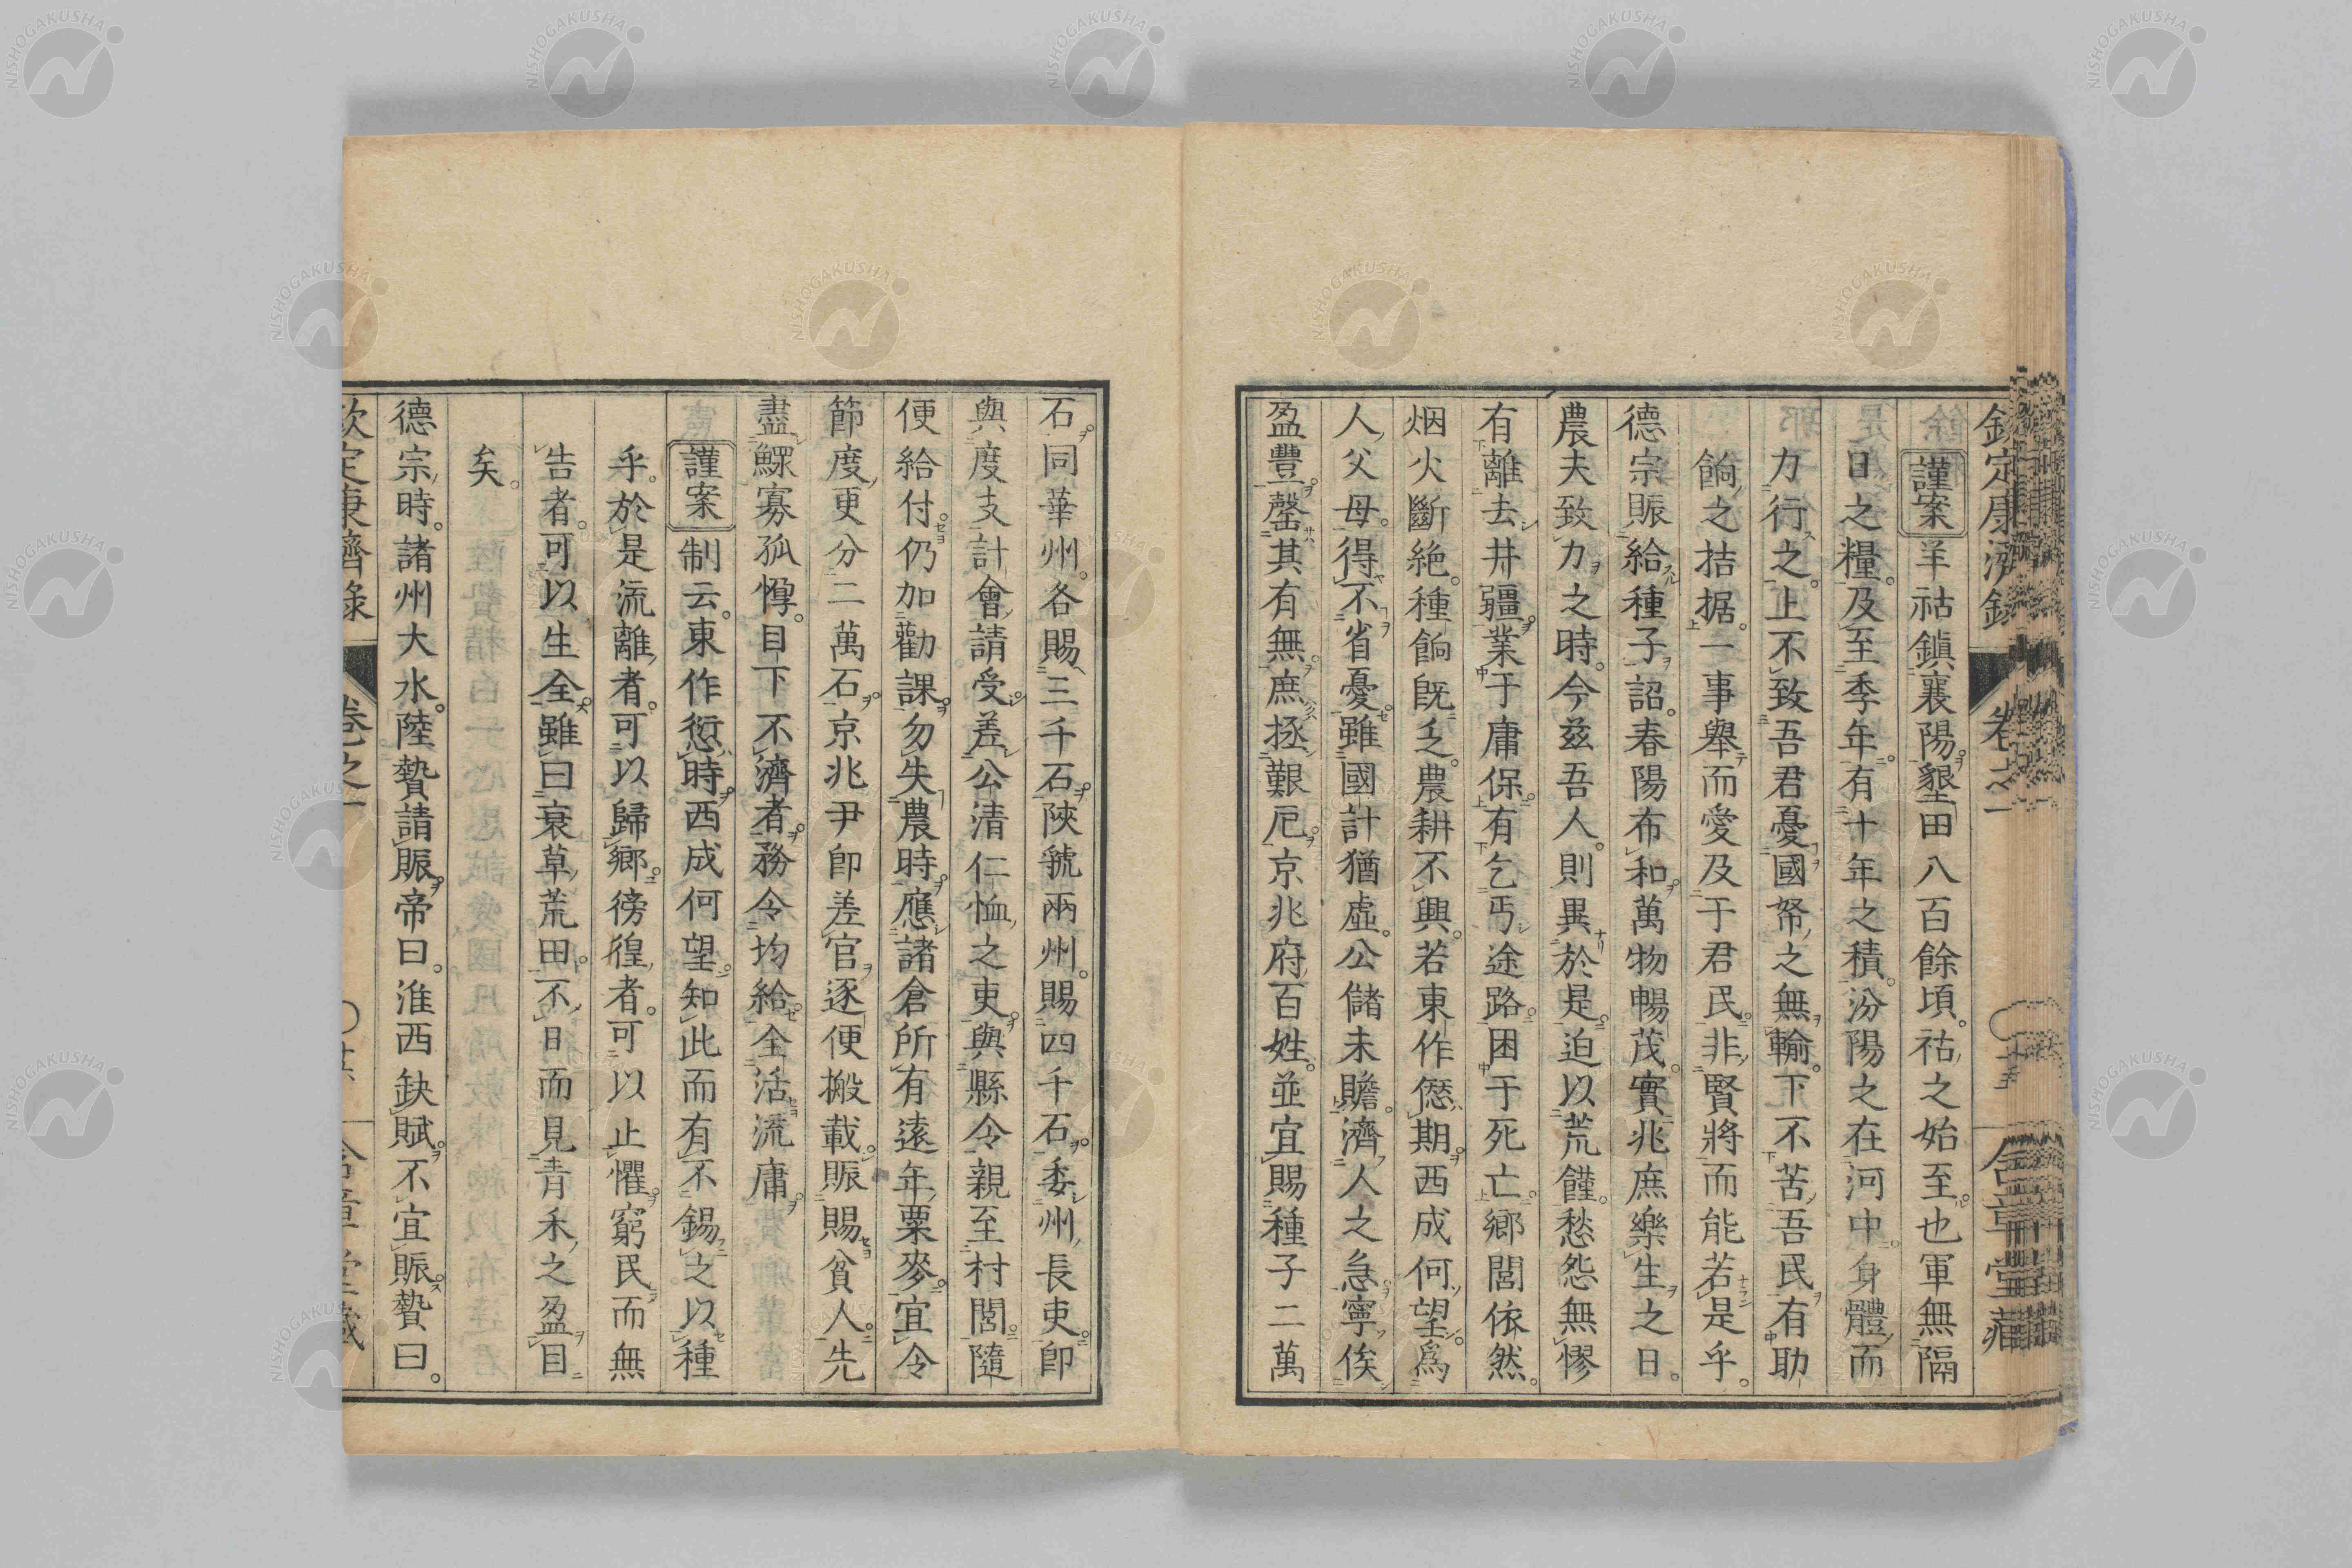 欽定康濟錄 卷之一 含章堂藏
謹案羊祜鎭襄陽墾田八百餘頃。祜之始至也軍無隔
日之糧。及至季年。有十年之積。汾陽之在河中。身體而
力行之。上不致吾君憂國帑之無輸。下不苦吾民有助
餉之拮据。一事舉而愛及于君民。非賢將而能若是乎。
德宗賑給種子詔。春陽布和。萬物暢茂。實兆庶樂生之日。
農夫致力之時。今兹吾人。則異於是。迫以荒饉。愁怨無憀
有離去井疆。業于庸保。有乞丐途路。困于死亡。鄉閭依然。
烟火斷絶。種餉既乏。農耕不興。若東作愆期。西成何望。爲
人父母。得不省憂。雖國計猶虛。公儲未贍。濟人之急。寧俟
盈豐。罄其有無。庶拯艱厄。京兆府百姓。並宜賜種子二萬
石。同華州。各賜三千石。陝虢兩州。賜四千石。委州長吏。卽
與度支計會請受。差公清仁恤之吏。與縣令親至村閭。隨
便給付。仍加勸課。勿失農時。應諸倉所有遠年粟麥。宜令
節度更分二萬石。京兆尹卽差官逐便搬載。賑賜貧人。先
盡鰥寡孤惸。目下不濟者。務令均給。全活流庸。
謹案制云。東作愆時。西成何望。知此而有不錫之以種
乎。於是流離者。可以歸鄉。徬徨者。可以止懼。窮民而無
告者。可以生全。雖曰衰草荒田。不日而見青禾之盈目
矣。
德宗時。諸州大水。陸贄請賑。帝曰。淮西缺賦。不宜賑。贄曰。
欽定康濟錄 卷之一 含章堂藏